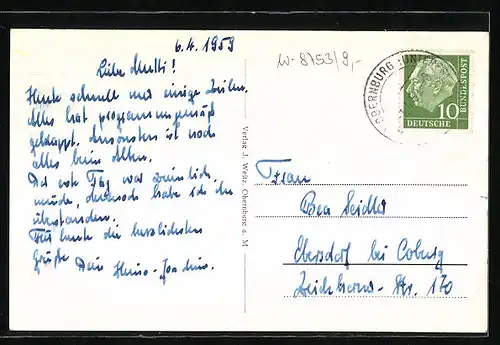 6.4.1959
Liebe Mutti!
Heute schnell nur einige Zeilen.
Alles hat programmgemäß
geklappt. Ansonsten ist noch
alles beim Alten.
Der erste Tag war ziemlich
müde, dennoch habe ich ihn
überstanden.
Für heute die herzlichsten
Grüße Dein Heino-Joachim.
Verlag J. Weitz, Obernburg a. M
W-8753/9,-
OBERNBURG (UNTERFR
10
DEUTSCHE
BUNDESPOST
Frau
Bea Seidler
Ebersdorf bei Coburg
Str. 170